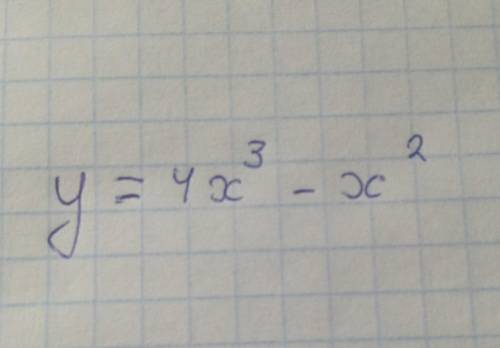 y = 4x³ - x²